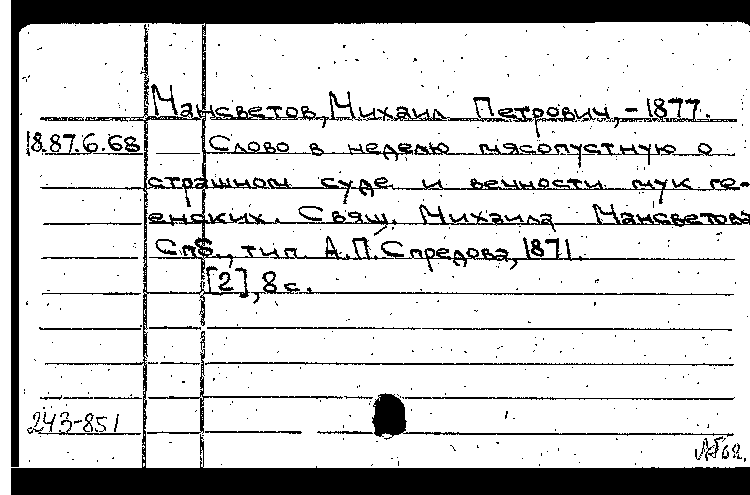 Мансветов, Михаил Петрович, -1877.
18.87.6.68 Слово в неделю мясопустную о
страшном суде и вечности мук ге-
енских. Свящ. Михаила Мансветова
Спб., тип. А.П. Спредова, 1871.
[2], 8 с.
243-851